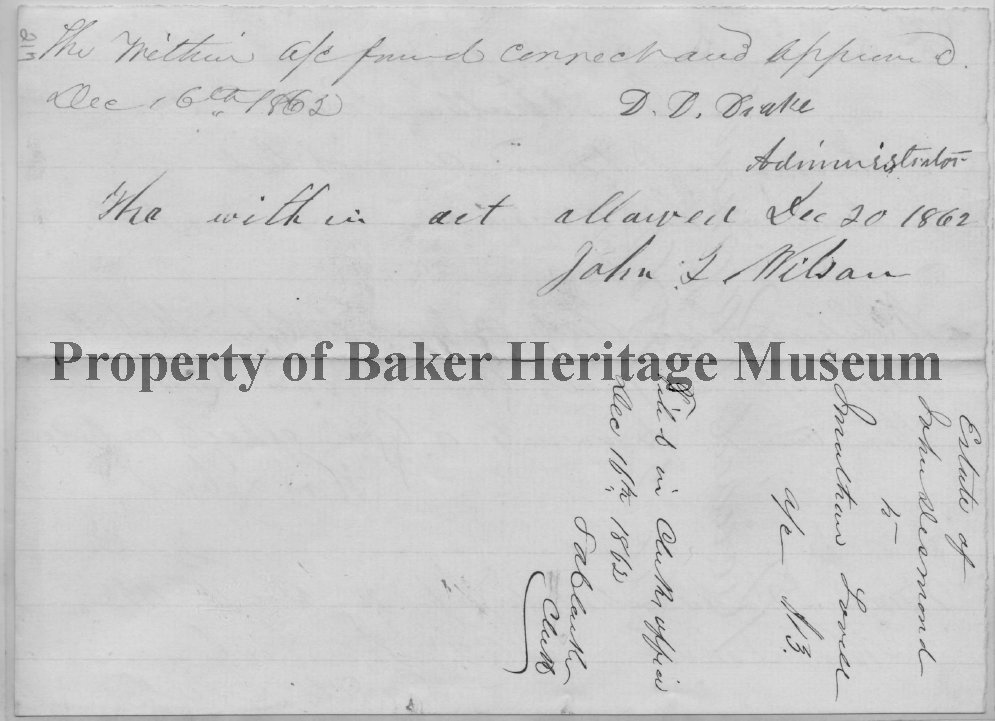 The Within a/c found correct and approved.
Dec 16th 1862
D. D. Drake
Administrator
The within act allowed Dec 20 1862
John L Wilson
Property of Baker Heritage Museum
Estate of
John Desmond
to
Lovell
a/c No 3.
Filed in Clerks office
Dec 16th 1862
Clerk